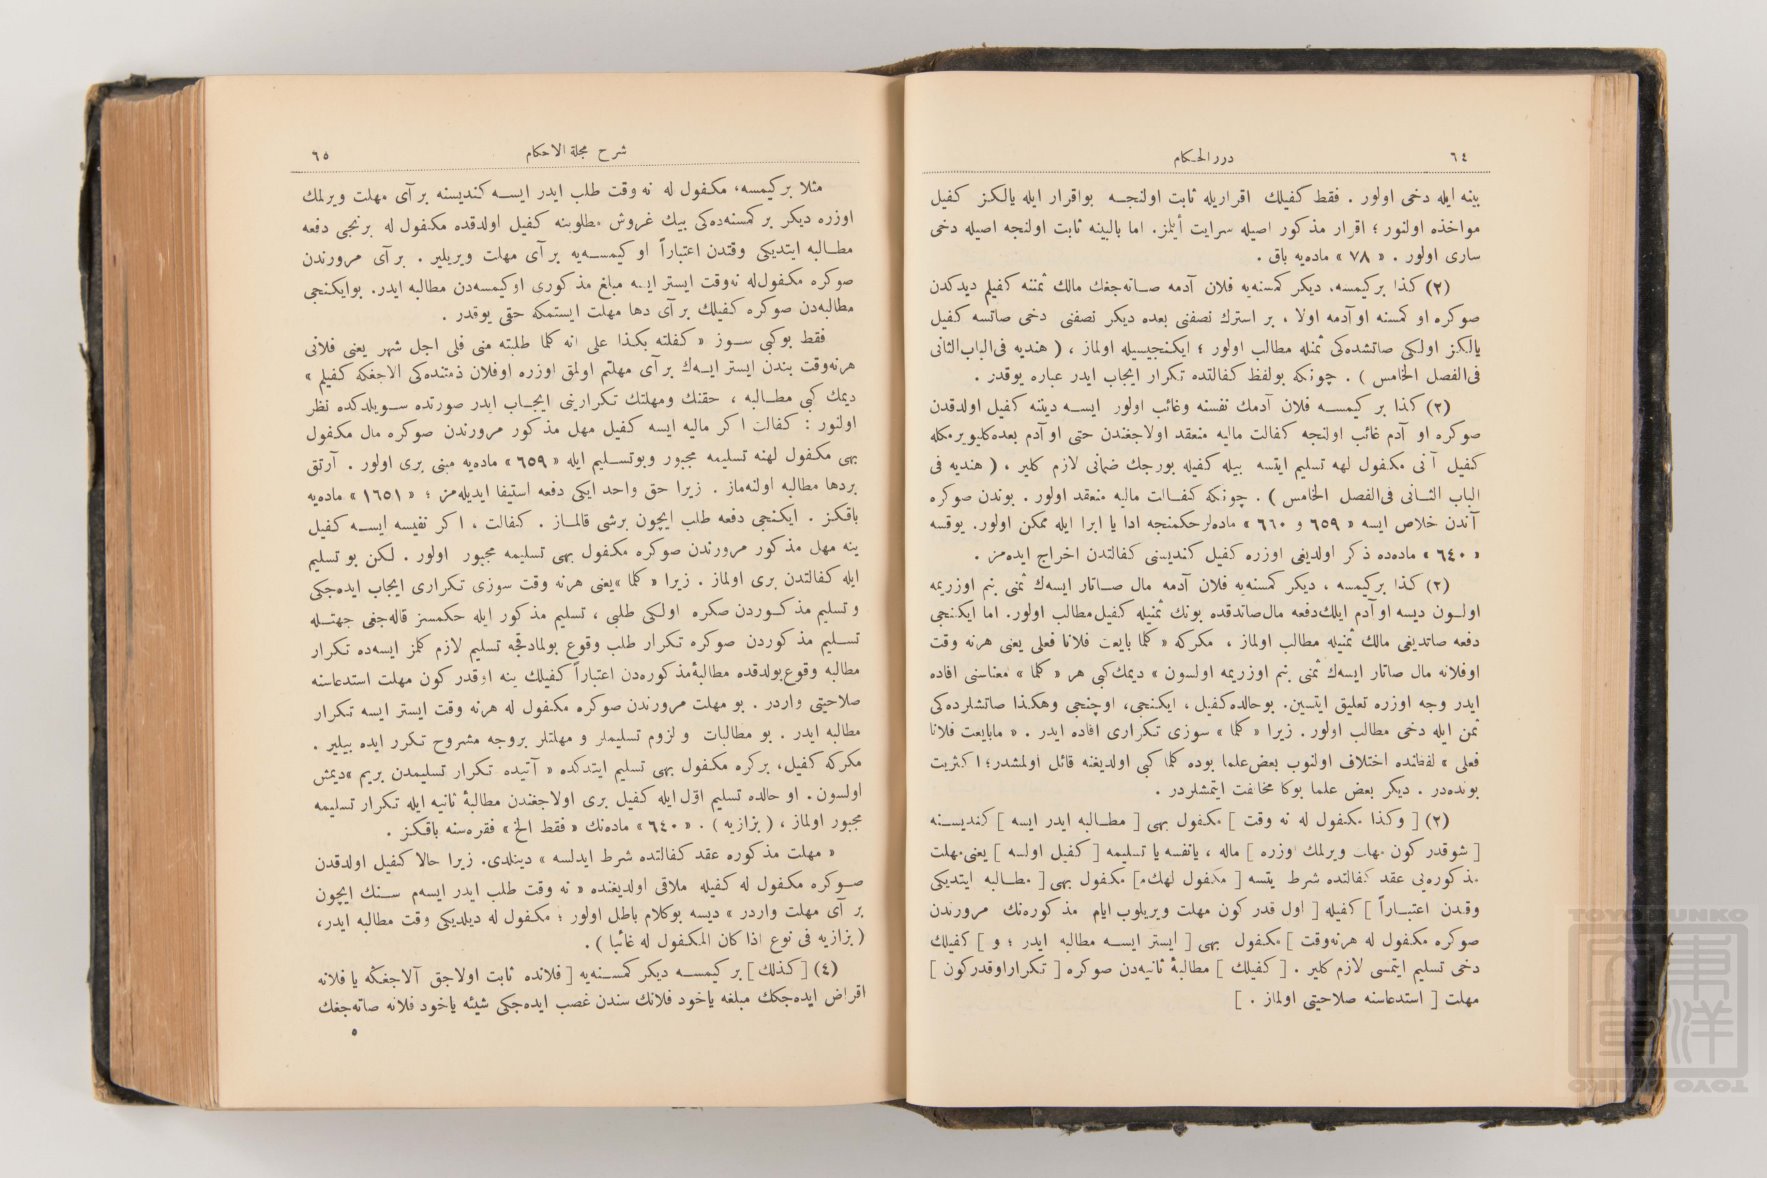 ٦٤
درر الحكام
بینه ایله دخی اولور . فقط كفیلك اقراریله ثابت اولنجه بواقرار ایله یالكز كفیل
مواخذه اولنور ؛ اقرار مذكور اصیله سرایت أیلمز. اما بالبینه ثابت اولنجه اصیله دخی
ساری اولور . « ٧٨ » ماده‌یه باق .
(٢) كذا بركیمسه، دیكر كمسنه‌یه فلان آدمه صاته‌جغك مالك ثمننه كفیلم دیدكدن
صوكره او كمسنه اوآدمه اولا ، بر استرك نصفنی بعده دیكر نصفنی دخی صاتسه كفیل
یالكز اولكی صاتشده‌كی ثمنله مطالب اولور ؛ ایكنجیسیله اولماز ، ( هندیه فی‌الباب‌الثانی
فی‌الفصل الخامس ) . چونكه بولفظ كفالتده تكرار ایجاب ایدر عباره یوقدر .
(٢) كذا بر كیمسه فلان آدمك نفسنه وغائب اولور ایسه دیننه كفیل اولدقدن
صوكره او آدم غائب اولنجه كفالت مالیه منعقد اولاجغندن حتی اوآدم بعده‌كلیویرمكله
كفیل آنی مكفول لهه تسلیم ایتسه بیله كفیله بورجك ضمانی لازم كلیر . ( هندیه فی
الباب الثانی فی‌الفصل الخامس ) . چونكه كفالت مالیه منعقد اولور . بوندن صوكره
آندن خلاص ایسه « ٦٥٩ و ٦٦٠ » ماده‌لرحكمنجه ادا یا ابرا ایله ممكن اولور. یوقسه
« ٦٤٠ » ماده‌ده ذكر اولدیغی اوزره كفیل كندیسنی كفالتدن اخراج ایده‌مز .
(٢) كذا بركیمسه ، دیكر كمسنه‌یه فلان آدمه مال صاتار ایسه‌ك ثمنی بنم اوزریمه
اولسون دیسه اوآدم ایلك‌دفعه مال‌صاتدقده بونك ثمنیله كفیل‌مطالب اولور. اما ایكنجی
دفعه صاتدیغی مالك ثمنیله مطالب اولماز ، مكركه « كلما بایعت فلانا فعلی یعنی هرنه وقت
اوفلانه مال صاتار ایسه‌ك ثمنی بنم اوزریمه اولسون » دیمك‌كبی هر « كلما » معناسنی افاده
ایدر وجه اوزره تعلیق ایتسین. بوحالده‌كفیل ، ایكنجی، اوچنجی وهكذا صاتشلرده‌كی
ثمن ایله دخی مطالب اولور . زیرا « كلما » سوزی تكراری افاده ایدر . « مابایعت فلانا
فعلی » لفظنده اختلاف اولنوب بعض‌علما بوده كلما كبی اولدیغنه قائل اولمشدر؛ اكثریت
بونده‌در . دیكر بعض علما بوكا مخالفت ایتمشلردر .
(٢) [ وكذا مكفول له نه وقت ] مكفول بهی [ مطالبه ایدر ایسه ] كندیسنه
[ شوقدر كون مهلت ویرلمك اوزره ] ماله ، یانفسه یا تسلیمه [ كفیل اولسه ] یعنی‌مهلت
مذكوره‌یی عقد كفالتده شرط یتسه [ مكفول لهك‌ه] مكفول بهی [ مطالبه ایتدیكی
وقتدن اعتباراً ] كفیله [ اول قدر كون مهلت ویریلوب ایام مذكوره‌نك مروندن
صوكره مكفول له هرنه‌وقت ] مكفول بهی [ ایستر ایسه مطالبه ایدر ؛ و ] كفیلك
دخی تسلیم ایتمسی لازم كلیر . [ كفیلك ] مطالبهٔ ثانیه‌دن صوكره [ تكراراوقدركون ]
مهلت [ استدعاسنه صلاحیتی اولماز . ]
شرح مجلة الاحكام
٦٥
مثلا بركیمسه، مكفول له نه وقت طلب ایدر ایسه كندیسنه برآی مهلت ویرلمك
اوزره دیكر بر كمسنه‌ده‌كی بیك غروش مطلوبنه كفیل اولدقده مكفول له برنجی دفعه
مطالبه ایتدیكی وقتدن اعتباراً او كیمسه‌یه برآی مهلت ویریلیر . برآی مروندن
صوكره مكفول‌له نه‌وقت ایستر ایسه مبلغ مذكوری اوكیمسه‌دن مطالبه ایدر. بوایكنجی
مطالبه‌دن صوكره كفیلك برآی دها مهلت ایستمكه حقی یوقدر .
فقط بوكبی سوز « كفلته بكذا علی انه كلما طلبته منی فلی اجل شهر یعنی فلانی
هرنه‌وقت بندن ایستر ایسه‌ك برآی مهلتم اولمق اوزره اوفلان ذمتنده‌كی الاجغكه كفیلم »
دیمك كبی مطالبه ، حقنك ومهلتك تكرارینی ایجاب ایدر صورتده سویلدكده نظر
اولنور : كفالت اكر مالیه ایسه كفیل مهل مذكور مروندن صوكره مال مكفول
بهی مكفول لهنه تسلیمه مجبور وبوتسلیم ایله « ٦٥٩ » ماده‌یه مبنی بری اولور . آرتق
بردها مطالبه اولنه‌ماز . زیرا حق واحد ایكی دفعه استیفا ایدیله‌مز ؛ « ١٦٥١ » ماده‌یه
باقكز . ایكنجی دفعه طلب ایچون برشی قالماز . كفالت ، اكر نفیسه ایسه كفیل
ینه مهل مذكور مروندن صوكره مكفول بهی تسلیمه مجبور اولور . لكن بو تسلیم
ایله كفالتدن بری اولماز . زیرا « كلما »یعنی هرنه وقت سوزی تكراری ایجاب ایده‌جكی
و تسلیم مذكوردن صكره اولكی طلبی ، تسلیم مذكور ایله حكمسز قاله‌جغی جهتله
تسلیم مذكوردن صوكره تكرار طلب وقوع بولمادقجه تسلیم لازم كلمز ایسه‌ده تكرار
مطالبه وقوع‌بولدقده مطالبهٔ‌مذكوره‌دن اعتباراً كفیلك ینه اوقدر كون مهلت استدعاسنه
صلاحیتی واردر . بو مهلت مروندن صوكره مكفول له هرنه وقت ایستر ایسه تكرار
مطالبه ایدر . بو مطالبات و لزوم تسلیملر و مهلتلر بروجه مشروح تكرر ایده بیلیر .
مكركه كفیل، بركره مكفول بهی تسلیم ایتدكده « آتیده تكرار تسلیمدن بریم »دیمش
اولسون. او حالده تسلیم اول ایله كفیل بری اولاجغندن مطالبهٔ ثانیه ایله تكرار تسلیمه
مجبور اولماز ، ( بزازیه ) . « ٦٤٠ » ماده‌نك « فقط الخ » فقره‌سنه باقكز .
« مهلت مذكوره عقد كفالتده شرط ایدلسه » دینلدی. زیرا حالا كفیل اولدقدن
صوكره مكفول له كفیله ملاقی اولدیغنده « نه وقت طلب ایدر ایسه‌م سنك ایچون
بر آی مهلت واردر » دیسه بوكلام باطل اولور ؛ مكفول له دیلدیكی وقت مطالبه ایدر،
( بزازیه فی نوع اذا كان المكفول له غائبا ) .
(٤) [ كذلك ] بر كیمسه دیكر كمسنه‌یه [ فلانده ثابت اولاجق آلاجغكه یا فلانه
اقراض ایده‌جكك مبلغه یاخود فلانك سندن غصب ایده‌جكی شیئه یاخود فلانه صاته‌جغك
٥
TOYO BUNKO
東洋文庫
TOYO BUNKO